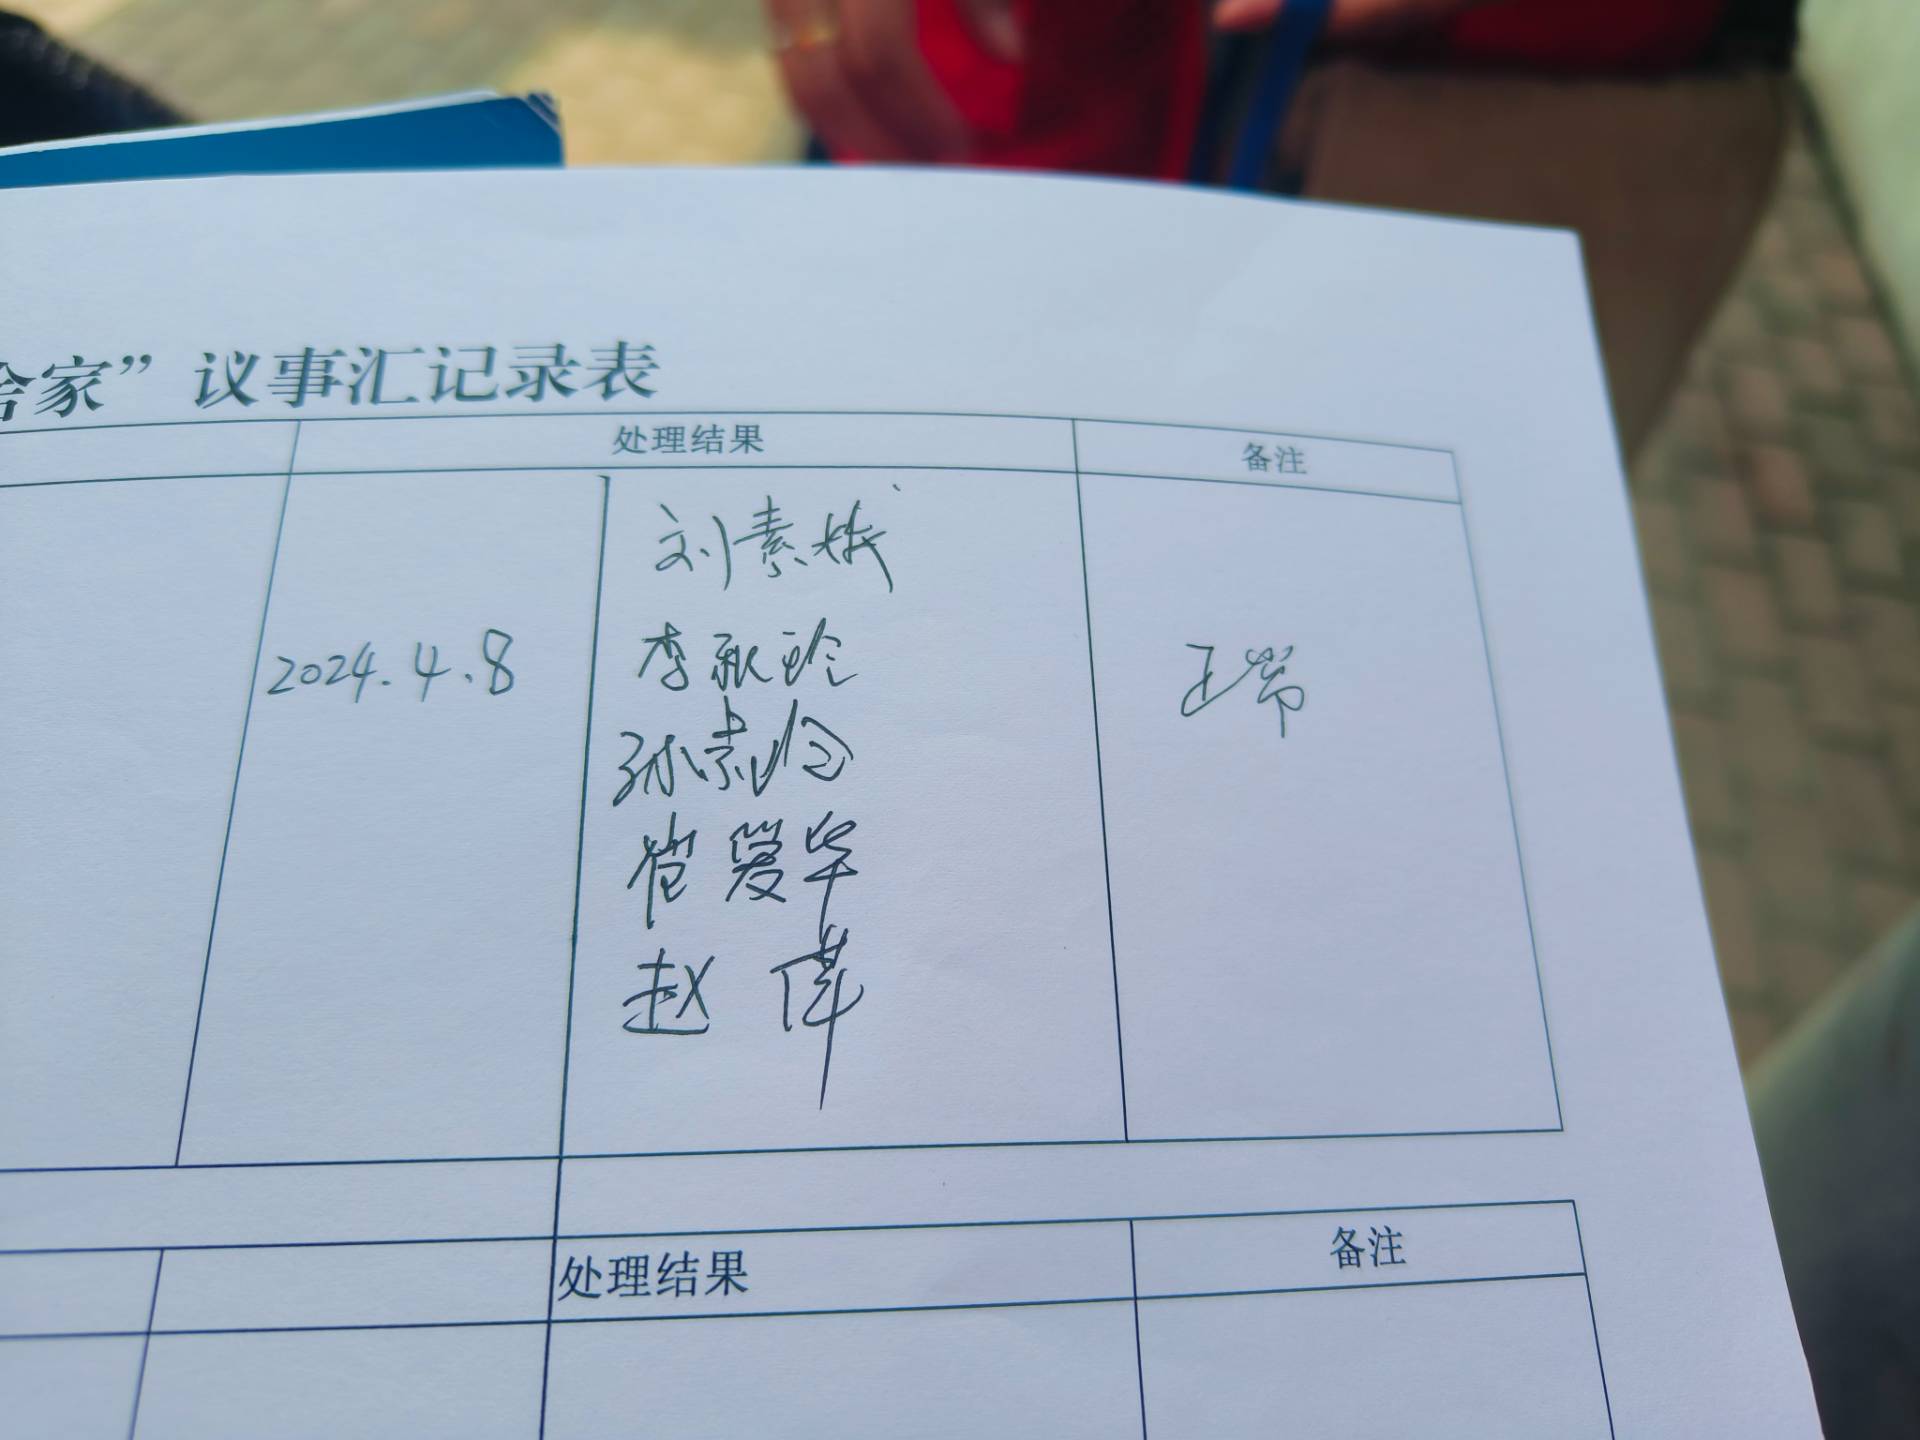 合家”议事汇记录表
处理结果
备注
刘素娥
2024.4.8
李秋玲
王常
孙素
崔爱华
赵伟
处理结果
备注